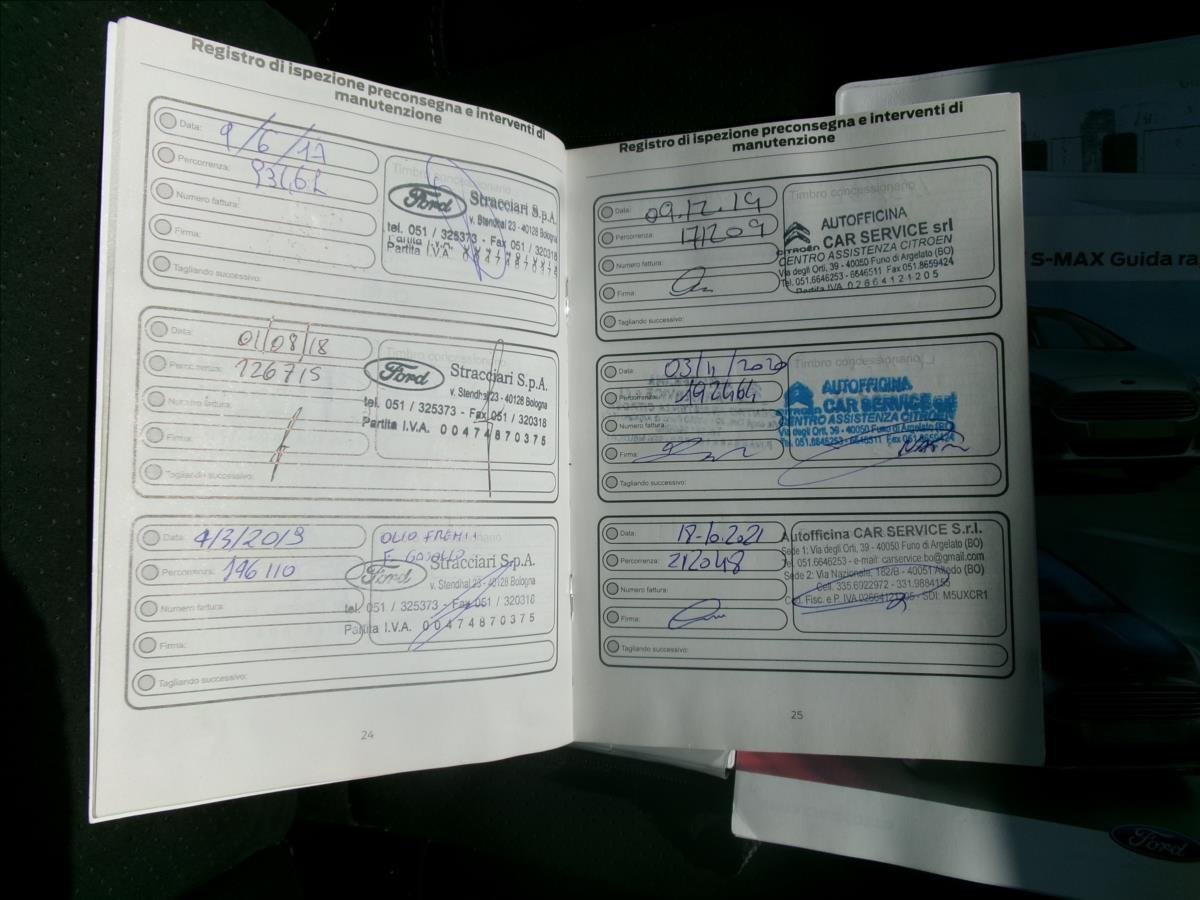 Registro di ispezione preconsegna e interventi di
manutenzione
Data: 9/6/17
Percorrenza:
Numero fattura:
Firma:
Tagliando successivo:
Timbro concessionario
Ford Stracciari S.p.A.
v. Stendhal 23 - 40128 Bologna
tel. 051 / 325373 - Fax 051 / 320318
Partita I.V.A. 00474870375
Data: 01/08/18
Percorrenza: 126715
Numero fattura:
Firma:
Tagliando successivo:
Timbro concessionario
Ford Stracciari S.p.A.
v. Stendhal 23 - 40128 Bologna
tel. 051 / 325373 - Fax 051 / 320318
Partita I.V.A. 00474870375
Data: 4/3/2019
Percorrenza: 146110
Numero fattura:
Firma:
Tagliando successivo:
OLIO FRENI
E
Ford Stracciari S.p.A.
v. Stendhal 23 - 40128 Bologna
tel. 051 / 325373 - Fax 051 / 320318
Partita I.V.A. 00474870375
24
Registro di ispezione preconsegna e interventi di
manutenzione
Data: 09.12.19
Percorrenza: 171209
Numero fattura:
Firma:
Tagliando successivo:
Timbro concessionario
AUTOFFICINA
CITROËN CAR SERVICE srl
CENTRO ASSISTENZA CITROEN
Via degli Orti, 39 - 40050 Funo di Argelato (BO)
Tel. 051.6646253 - 6646511 Fax 051.8659424
Partita IVA 02864121205
Data: 03/11/2020
Percorrenza: 192464
Numero fattura:
Firma:
Tagliando successivo:
Timbro concessionario
AUTOFFICINA
CAR SERVICE srl
CENTRO ASSISTENZA CITROEN
Via degli Orti, 39 - 40050 Funo di Argelato (BO)
Tel. 051.6646253 - 6646511 Fax 051.8659424
Data: 18-10.2021
Percorrenza: 212048
Numero fattura:
Firma:
Tagliando successivo:
Autofficina CAR SERVICE S.r.l.
Sede 1: Via degli Orti, 39 - 40050 Funo di Argelato (BO)
Tel. 051.6646253 - e-mail: carservice.bo@gmail.com
Sede 2: Via Nazionale, 162/B - 40051 Altedo (BO)
Cell. 335.6922972 - 331.9884155
Cod. Fisc. e P. IVA 02864121205 - SDI: M5UXCR1
25
S-MAX Guida ra
Ford